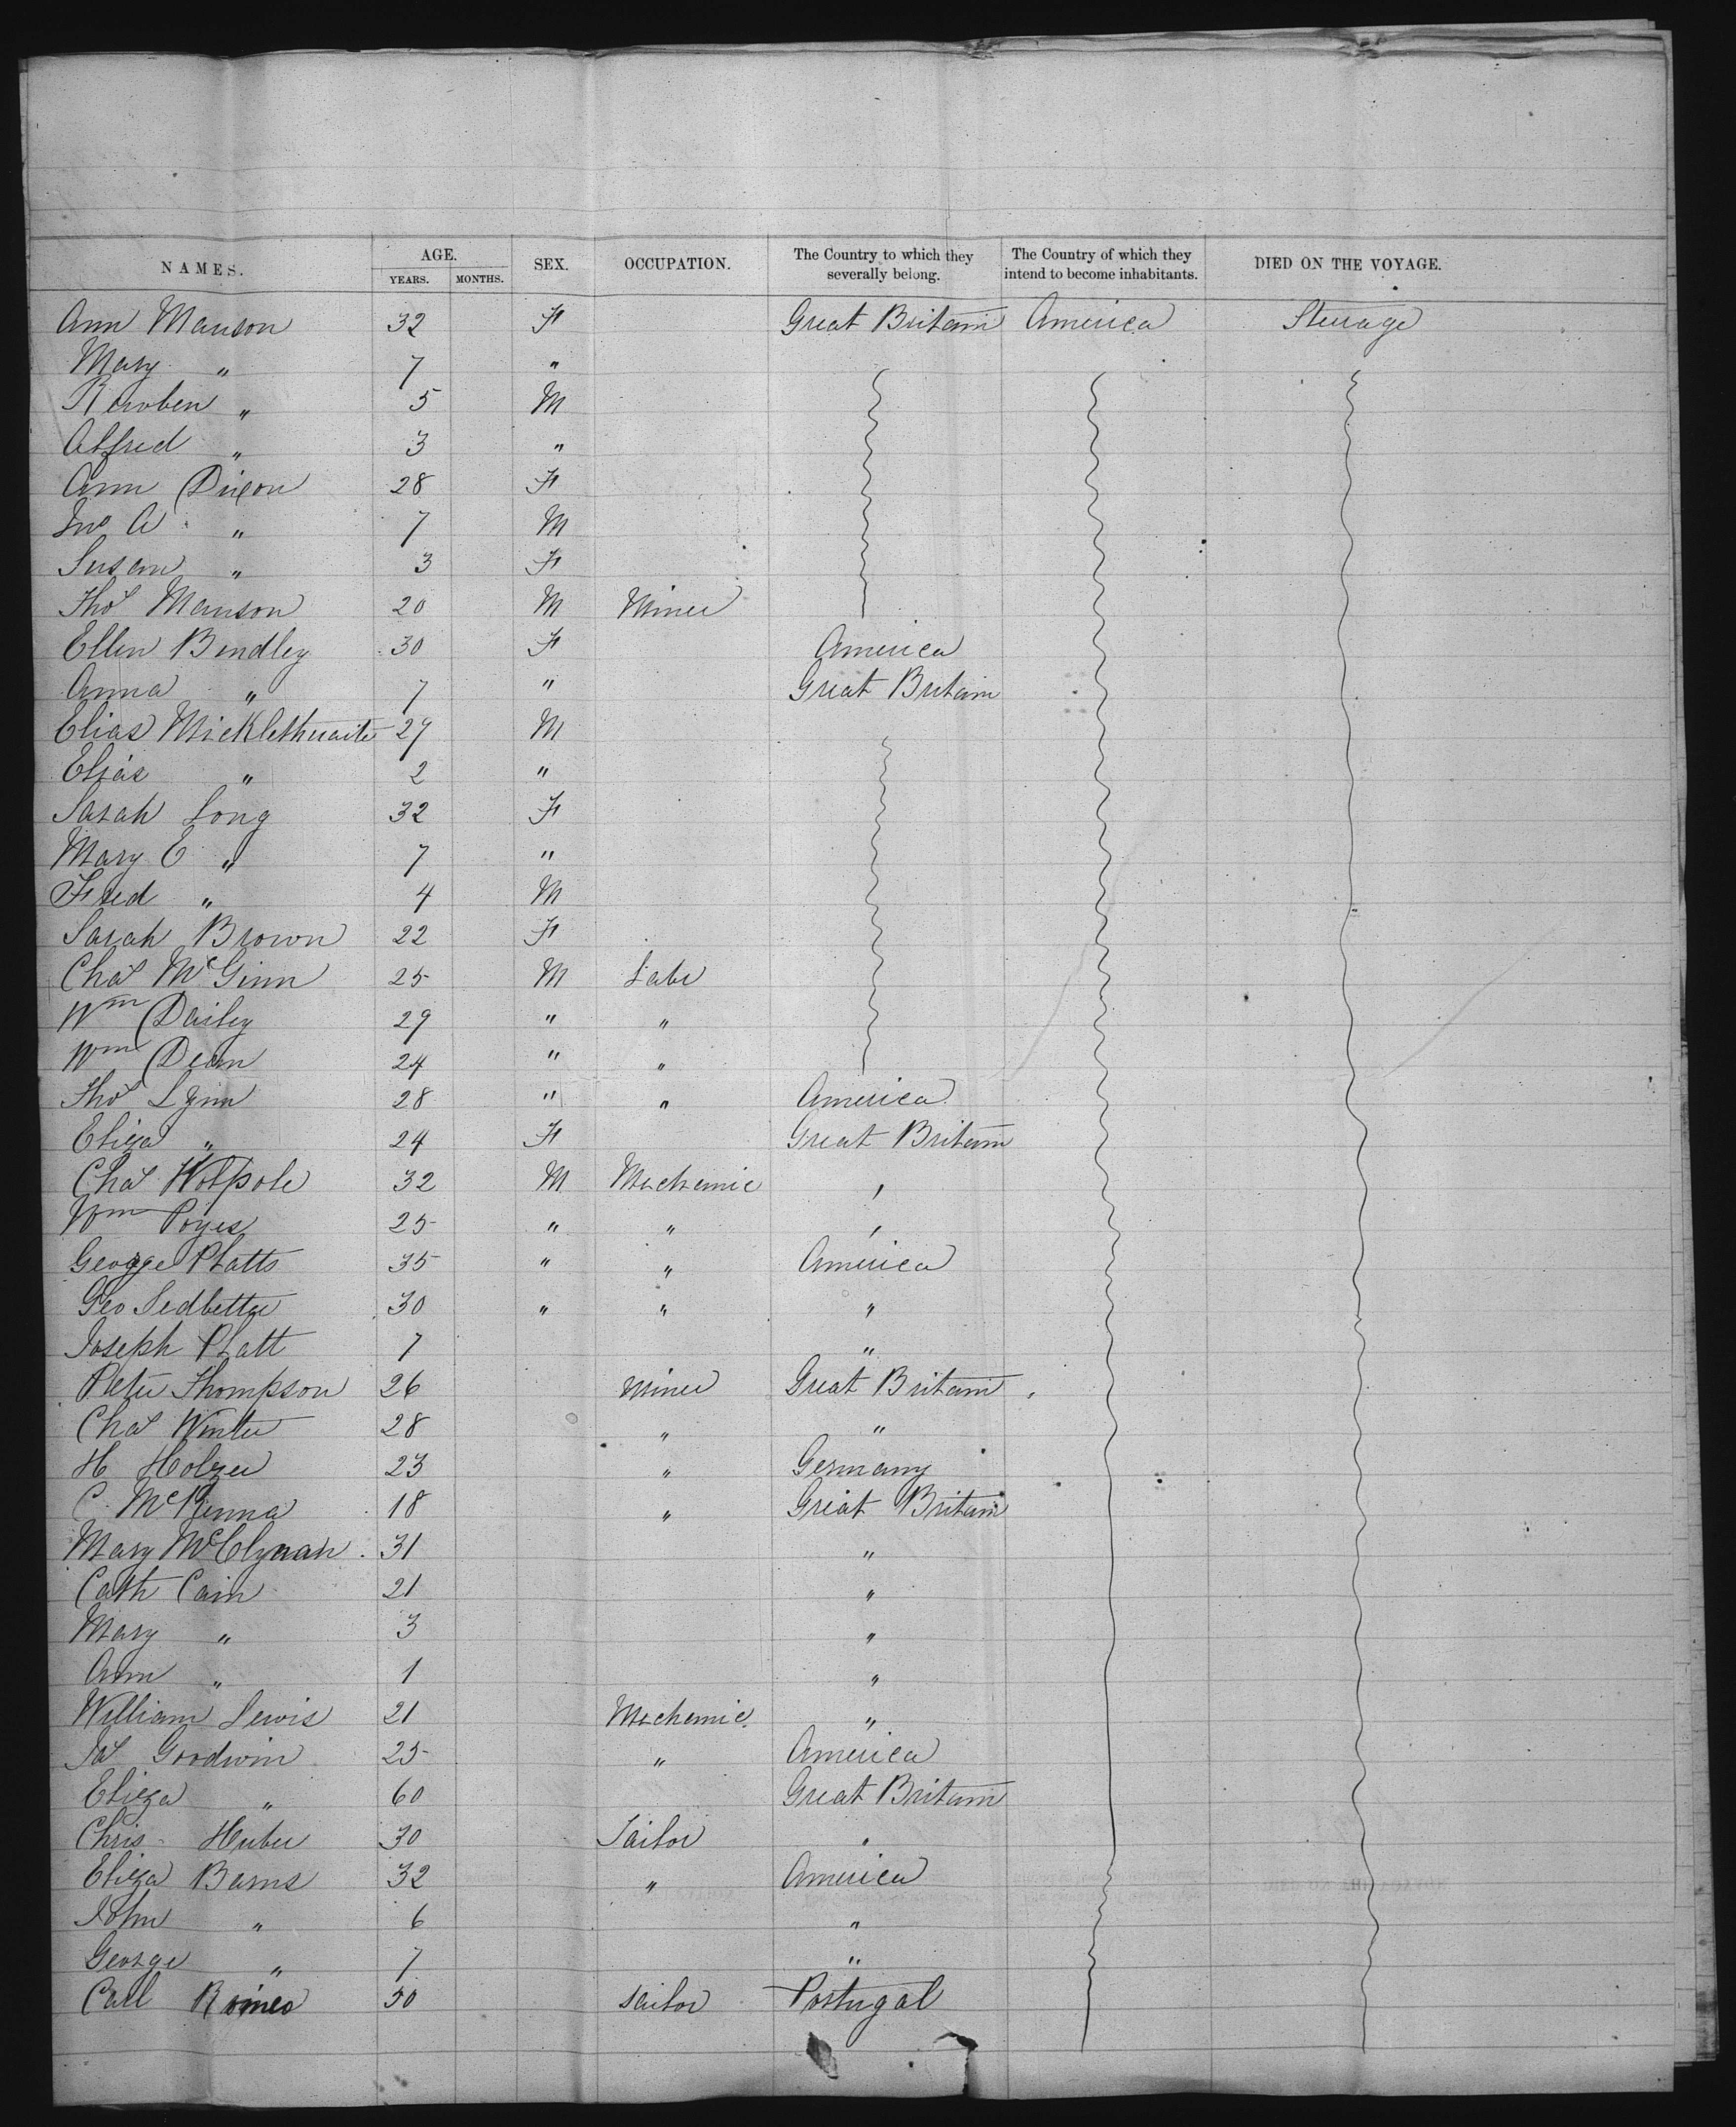 NAMES. AGE. SEX. OCCUPATION. The Country to which they severally belong. The Country of which they intend to become inhabitants. DIED ON THE VOYAGE.
YEARS. MONTHS.
Ann Manson 32 F Great Britain America Steerage
Mary " 7 "
Reuben " 5 M
Alfred " 3 "
Ann Dixon 28 F
Jno A " 7 M
Susan " 3 F
Thos Manson 20 M Miner
Ellen Bendley 30 F America
Anna " 7 " Great Britain
Elias Micklethwaite 27 M
Elias " 2 "
Sarah Long 32 F
Mary E " 7 "
Fred " 4 M
Sarah Brown 22 F
Chas McGinn 25 M Labr
Wm Dailey 29 " "
Wm Dean 24 " "
Thos Lynn 28 " " America
Eliza " 24 F Great Britain
Chas Wolpole 32 M Mechanic "
Wm Poyes 25 " " "
George Platts 35 " " America
Geo Ledbetter 30 " " "
Joseph Platt 7 "
Peter Thompson 26 Miner Great Britain
Chas Winter 28 " "
H Holzer 23 " Germany
C. McKenna 18 " Great Britain
Mary McClynan 31 "
Cath Cain 21 "
Mary " 3 "
Ann " 1 "
William Lewis 21 Mechanic "
Jas Goodwin 25 " America
Eliza " 60 Great Britain
Chris Huber 30 Sailor "
Eliza Barns 32 " America
John " 6 "
George " 7 "
Carl Romeo 50 Sailor Portugal